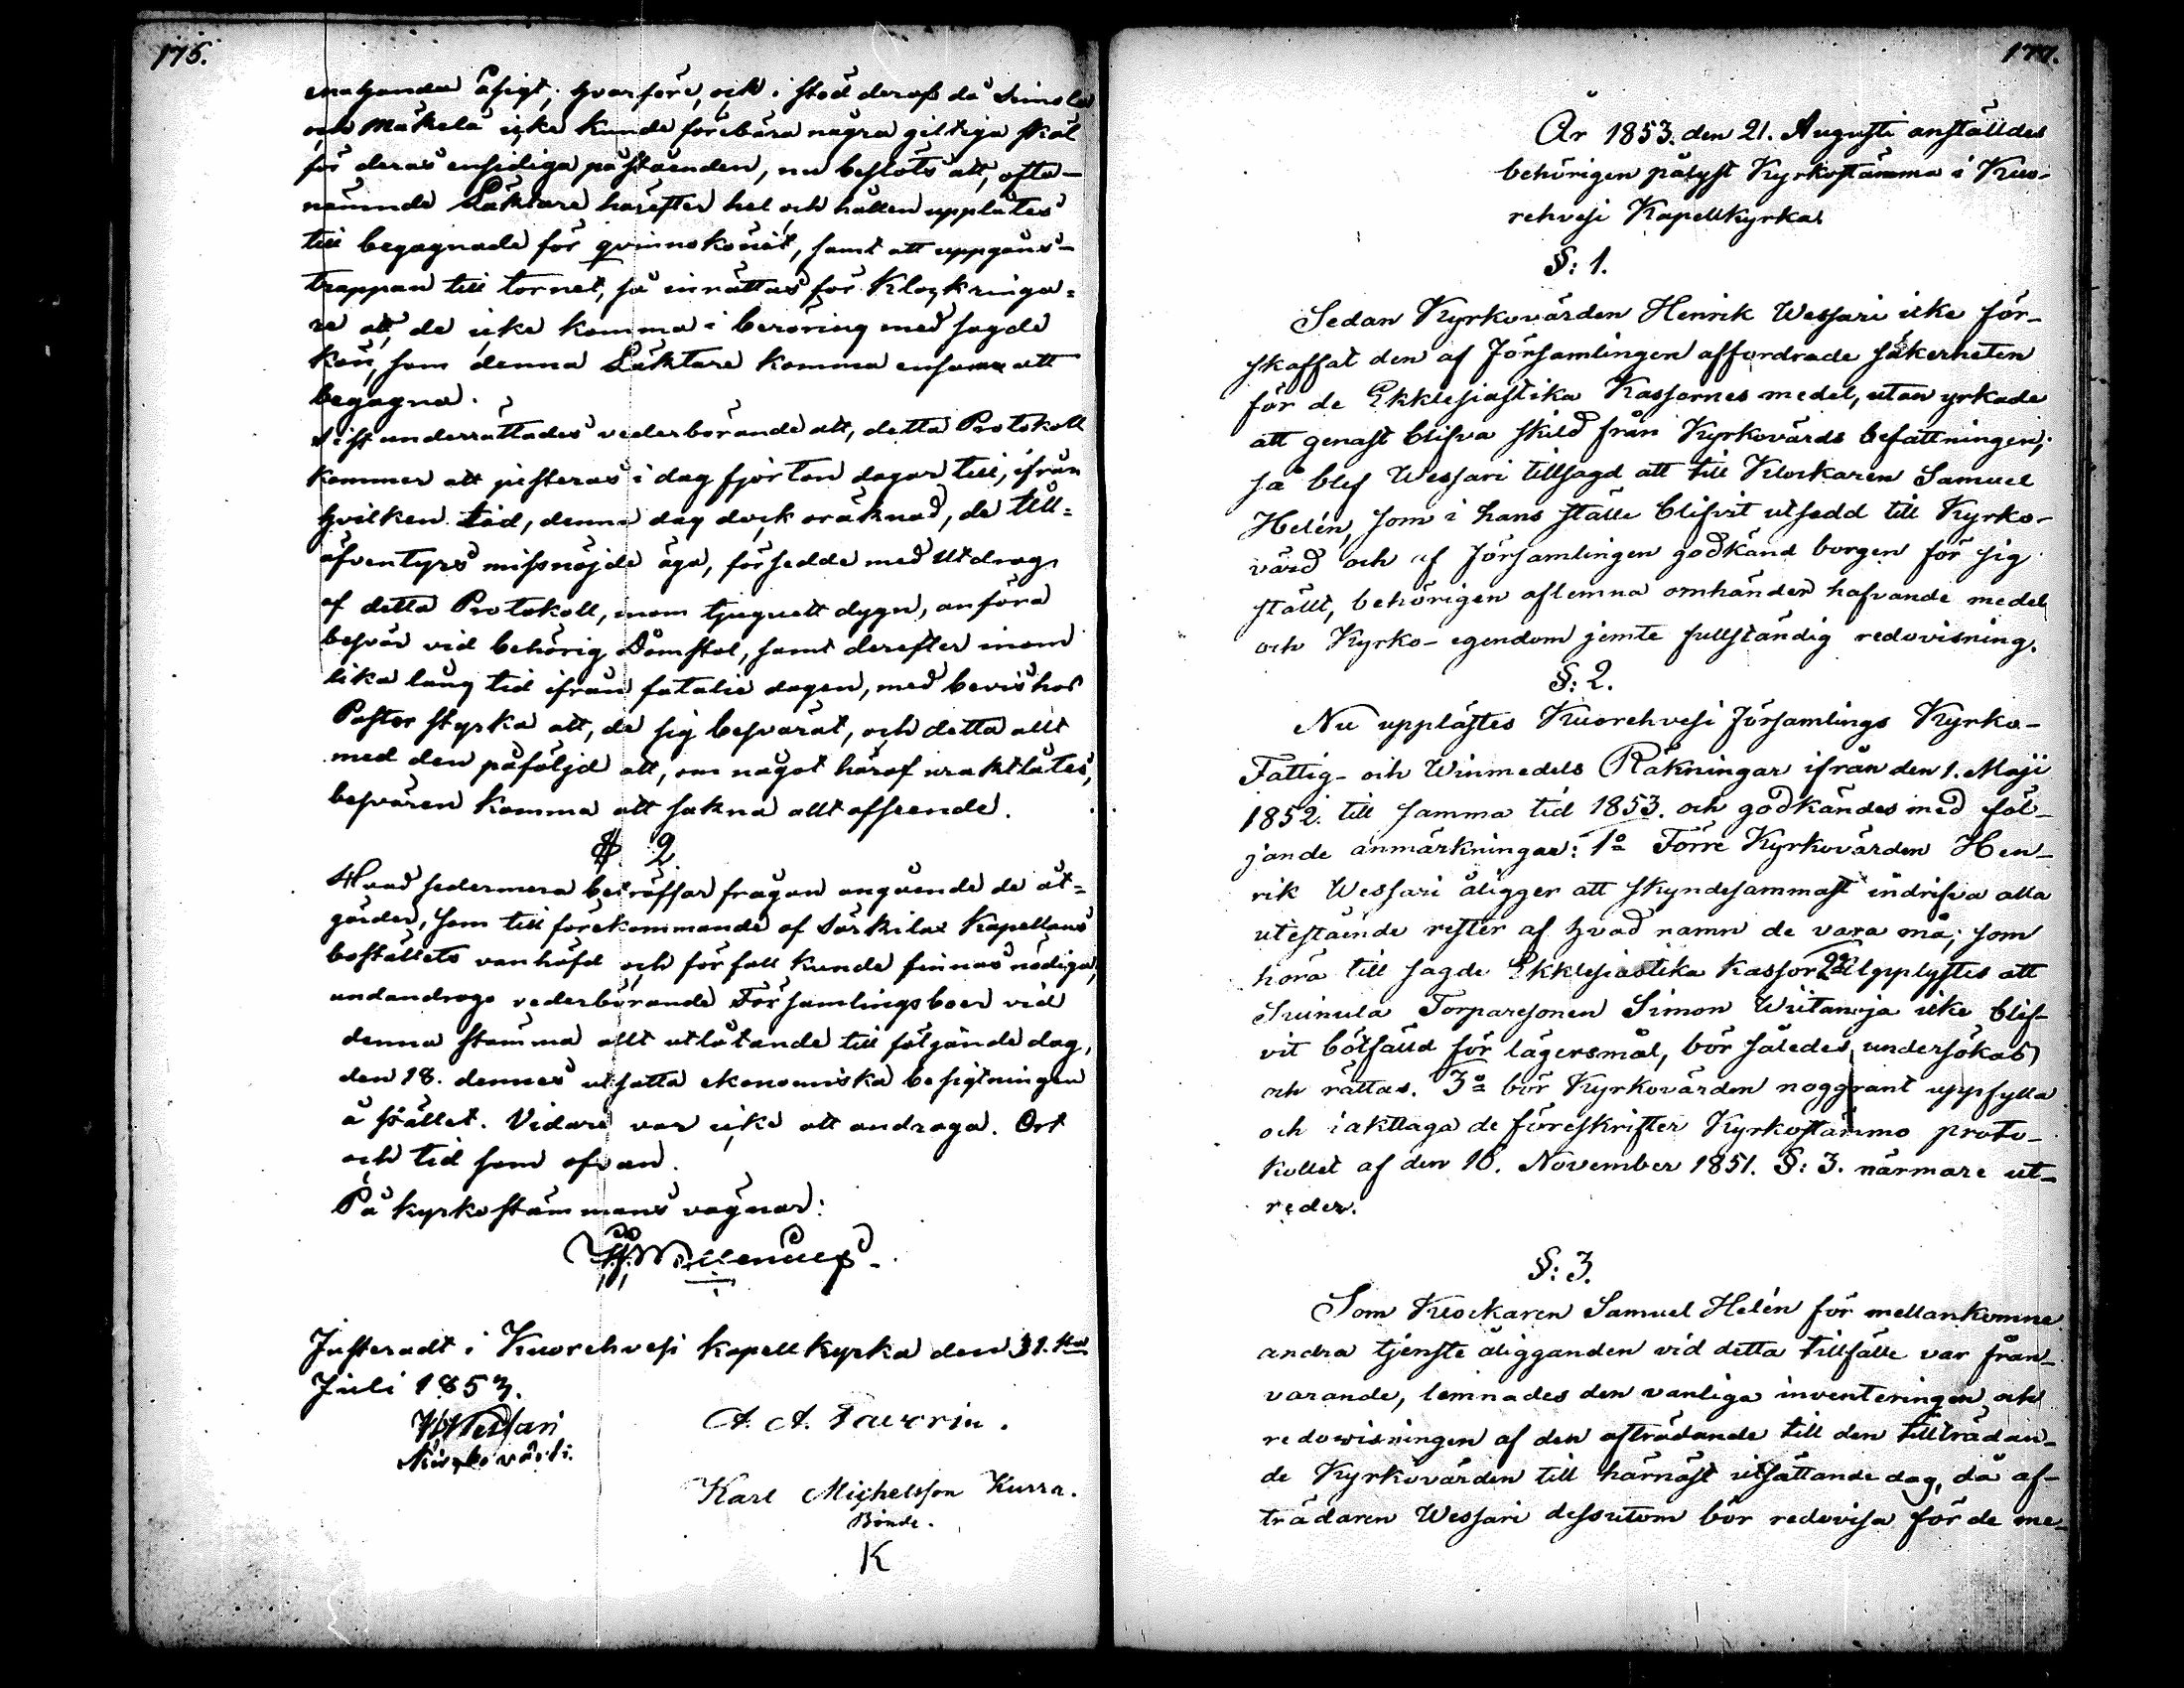 175.
enahanda åsigt; hvarföre, och i stöd deraf då Simola
och Mäkelä icke kunde förebära några giltiga skäl
för deras ensidiga påståenden, nu beslöts att, ofta-
nämnde Läktare härefter hel och hållen upplåtes
till begagnade för qvinnokönet, samt att uppgångs-
trappan till tornet, så inrättas för Klockringa=
re att, de icke komma i beröring med sagde
kön, som denna Läktare komma ensamt att
begagna.
Sist underrättades vederbörande att, detta Protokoll
kommer att justeras i dag fjorton dagar till, ifrån
hvilken tid, denna dag dock oräknad, de till=
äfventyrs missnöjde äga, försedde med Utdrag
af detta Protokoll, inom tjuguett dygn, anföra
besvär vid behörig Domstol, samt derefter inom
lika lång tid ifrån fatalie dagen, med bevis hos
Pastor styrka att, de sig besvärat, och detta allt
med den påföljd att, om något häraf uraktlåtes,
besvären komma att sakna allt afseende.
§ 2
Hvad sedermera beträffar frågan angående de åt=
gärder, som till förekommande af Särkilax Kapellans
boställets vanhäfd och förfall kunde finnas nödiga,
undandrogo vederbörande Församlingsboer vid
denna stämma allt utlåtande till följande dag,
den 18. dennes utsatta ekonomiska besigtningen
å stället. Vidare var icke att andraga. Ort
och tid som ofvan.
På kyrkostämmans vägnar:
Justeradt i Kuorehvesi kapellkyrka den 31.sta
Juli 1853.
H Wessari
A. A. Taverin.
Karl Michelsson Kurra.
Bonde.
K
177.
År 1853. den 21. Augusti anställdes
behörigen pålyst Kyrkostämma i Kuo-
rehvesi Kapellkyrka.
§: 1.
Sedan Kyrkovärden Henrik Wessari icke för-
skaffat den af Församlingen affordrade säkerheten
för de Ekklesiastika Kassornes medel, utan yrkade
att genast blifva skild från Kyrkovärds befattningen;
så blef Wessari tillsagd att till Klockaren Samuel
Helén, som i hans ställe blifvit utsedd till Kyrko-
värd och af Församlingen godkänd borgen för sig
ställt, behörigen aflemna omhänder hafvande medel
och Kyrko-egendom jemte fullständig redovisning.
§: 2.
Nu upplästes Kuorehvesi Församlings Kyrko-
Fattig- och Winmedels Räkningar ifrån den 1. Maji
1852. till samma tid 1853. och godkändes med föl-
jande anmärkningar: 1o Förre Kyrkovärden Hen-
rik Wessari åligger att skyndesammast indrifva alla
utestående rester af hvad namn de vara må, som
höra till sagde Ekklesiastika Kassor 2o Upplystes att
Suinula Torparesonen Simon Wiitanija icke blif-
vit bötfälld för lägersmål, bör således undersökas
och rättas. 3o bör Kyrkovärden noggrant uppfylla
och iakttaga de föreskrifter Kyrkostämmo proto-
kollet af den 16. November 1851. §: 3. närmare ut-
reder.
§: 3.
Som Klockaren Samuel Helén för mellankomne
andra tjenste åligganden vid detta tillfälle var från-
varande, lemnades den vanliga inventeringen och
redovisningen af den afträdande till den tillträdan-
de Kyrkovärden till härnäst utsättande dag, då af-
trädaren Wessari dessutom bör redovisa för de me-